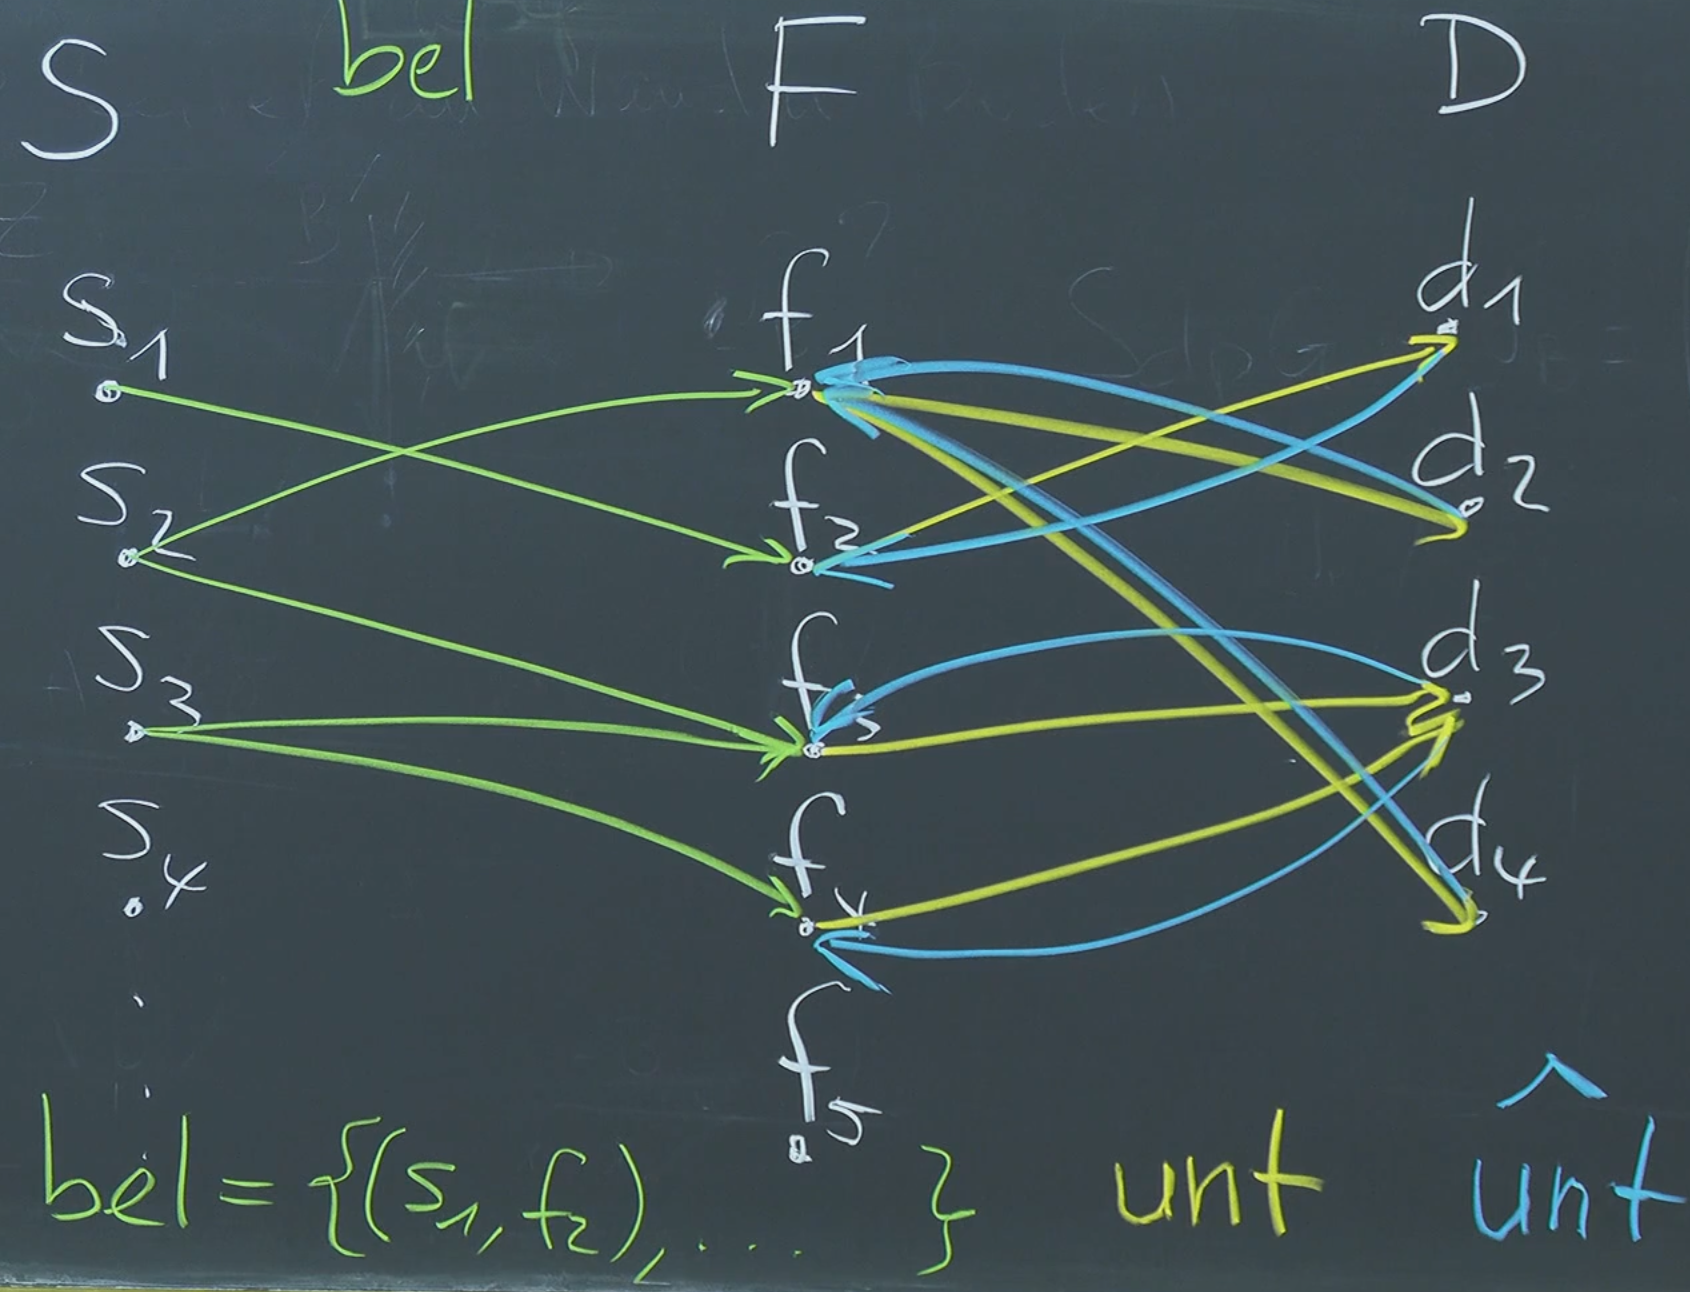 S bel F D
s1 f1 d1
s2 f2 d2
s3 f3 d3
s4 f4 d4
f5
bel = {(s1, f2), .... } unt ûnt